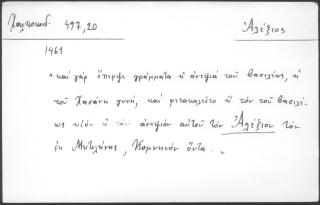 Χαλκοκονδ. 497,20 Ἀλέξιος
1461
"καὶ γὰρ ἔπεμψε γράμματα ἡ ἀνεψιὰ τοῦ βασιλέως, ἡ
τοῦ Χασάνη γυνή, καὶ μετεκαλεῖτο ἢ τὸν τοῦ βασιλέ-
ως υἱὸν ἢ τὸν ἀνεψιὸν αὐτοῦ τὸν Ἀλέξιον τὸν
ἐκ Μυτιλήνης, Κομνηνὸν ὄντα."